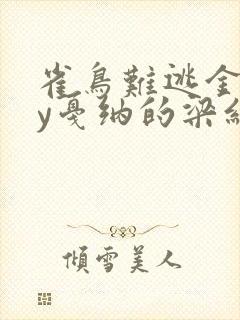 雀鳥難逃金
y戛纳的梁
傾雪美人